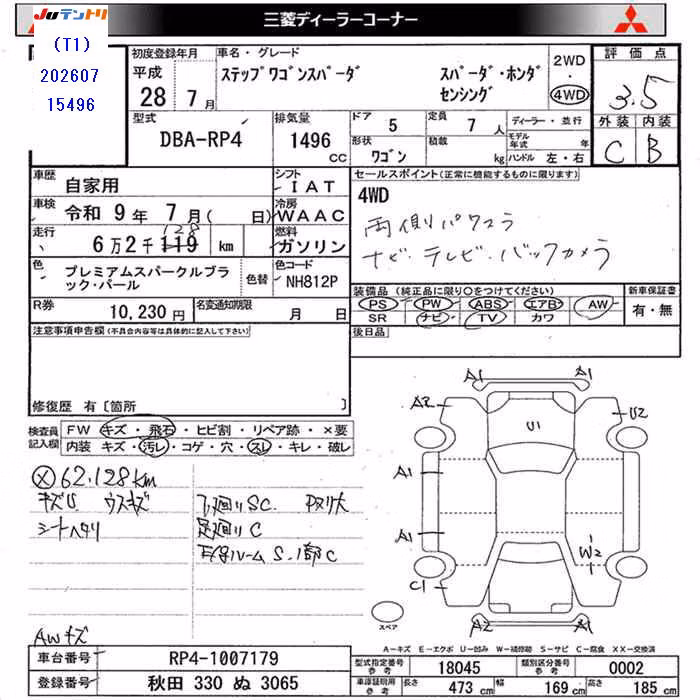 Juテントリ
三菱ディーラーコーナー
MITSUBISHI
(T1)
202607
15496
初度登録年月
平成
28 7月
車名・グレード
ステップワゴンスパーダ スパーダ・ホンダ
センシング
2WD
4WD
評価点
3.5
外装 内装
C B
型式
DBA-RP4
排気量
1496
CC
ドア 5
定員 7 人
形状 ワゴン
積載 kg
ディーラー・並行
モデル年式 年
ハンドル 左・右
車歴 自家用
シフト IAT
車検 令和 9年 7月( 日)
冷房 WAAC
走行 6万2千119 km
128
燃料 ガソリン
色 プレミアムスパークルブラ
ック・パール
色替
色コード
NH812P
R券 10,230 円
名変通知期限 月 日
セールスポイント(正常に機能するものに限ります)
4WD
両側パワスラ
ナビ・テレビ・バックカメラ
装備品(純正品に限り○をつけてください)
PS PW ABS エアB AW
SR ナビ TV カワ
新車保証書
有・無
後日品
注意事項申告欄(不具合内容等は具体的に記入して下さい)
修復歴 有〔箇所 〕
検査員
記入欄
FW キズ・飛石・ヒビ割・リペア跡・×要
内装 キズ・汚レ・コゲ・穴・スレ・キレ・破レ
× 62.128km
キズU ウスキズ
シートヘタリ
下廻りSC. Pヌリ大
足廻りC
E/gルームS.1部C
AWキズ
A1 A1
A2 U1 U2
A1
A1
W2
C1
A2 B1
スペア
A−キズ E−エクボ U−凹み W−補修跡 S−サビ C−腐食 XX−交換済
車台番号 RP4-1007179
登録番号 秋田 330 ぬ 3065
型式指定番号
参考 18045
類別区分番号
参考 0002
車庫証明用
参考
長さ 473 cm 幅 169 cm 高さ 185 cm